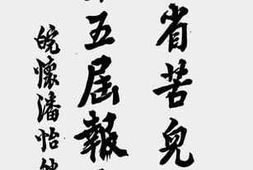 省苦兒
五屆報
皖懷潘怙